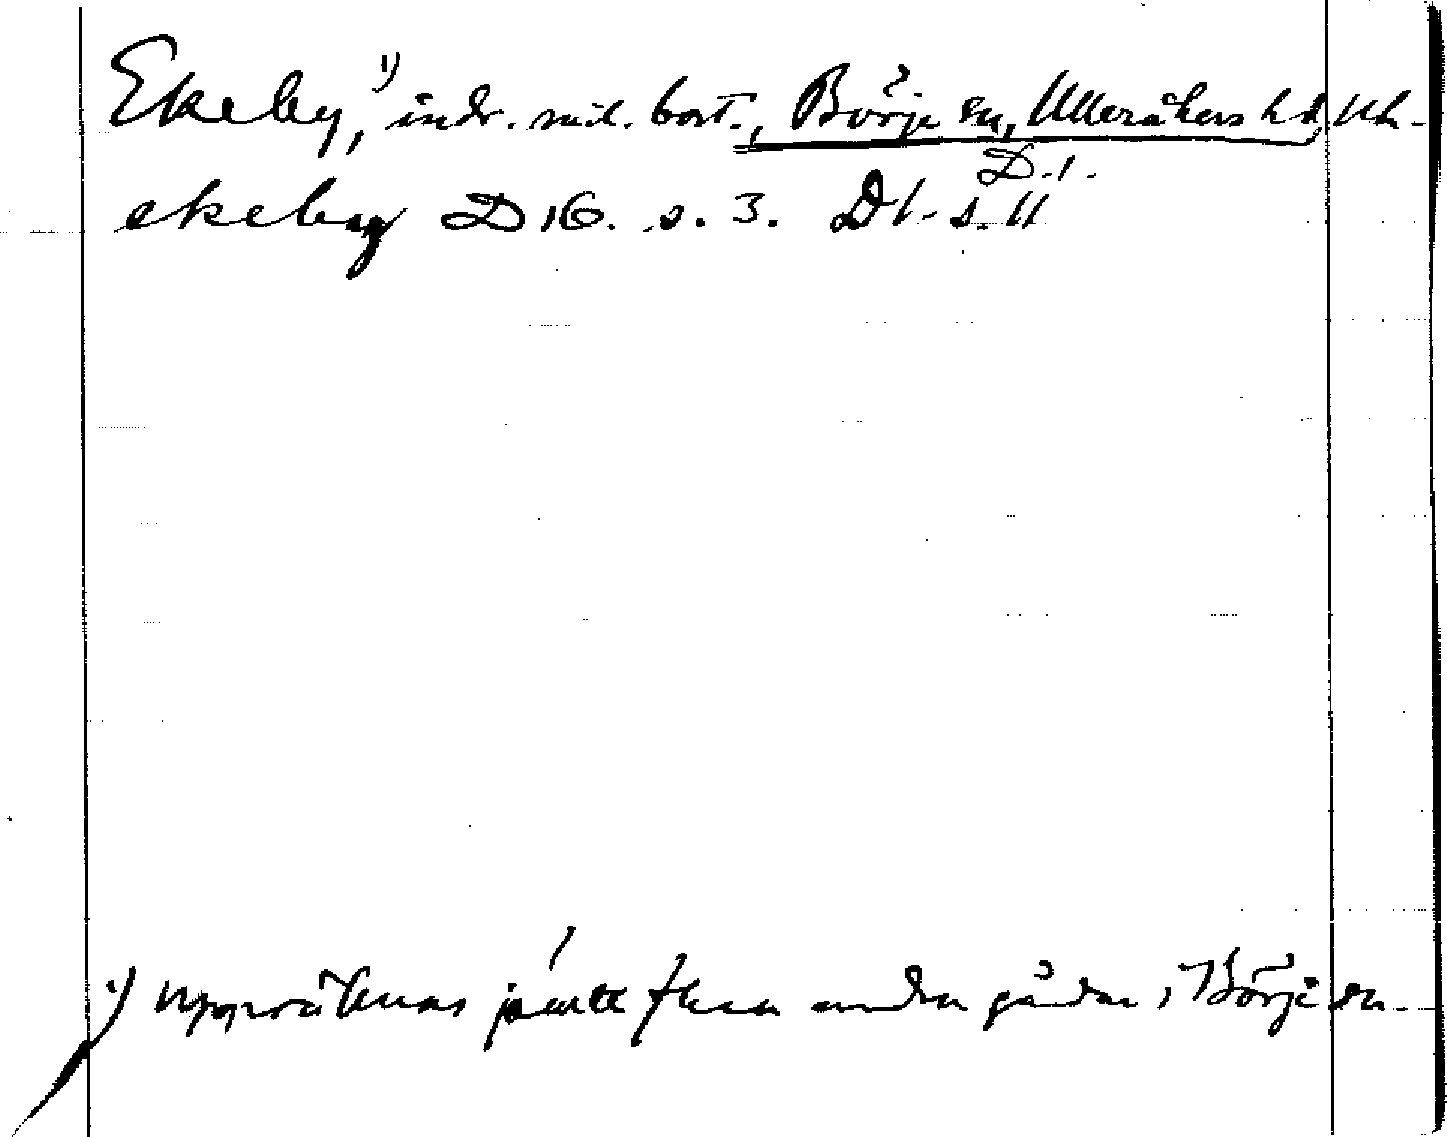 Ekeby,¹) indr. mil. bost., Börje sn, Ulleråkers hd Uh.
D.1.
ekeby D 16. s. 3. D1. s. 11
¹) uppräknas jämte flera andra gårdar i Börje sn.